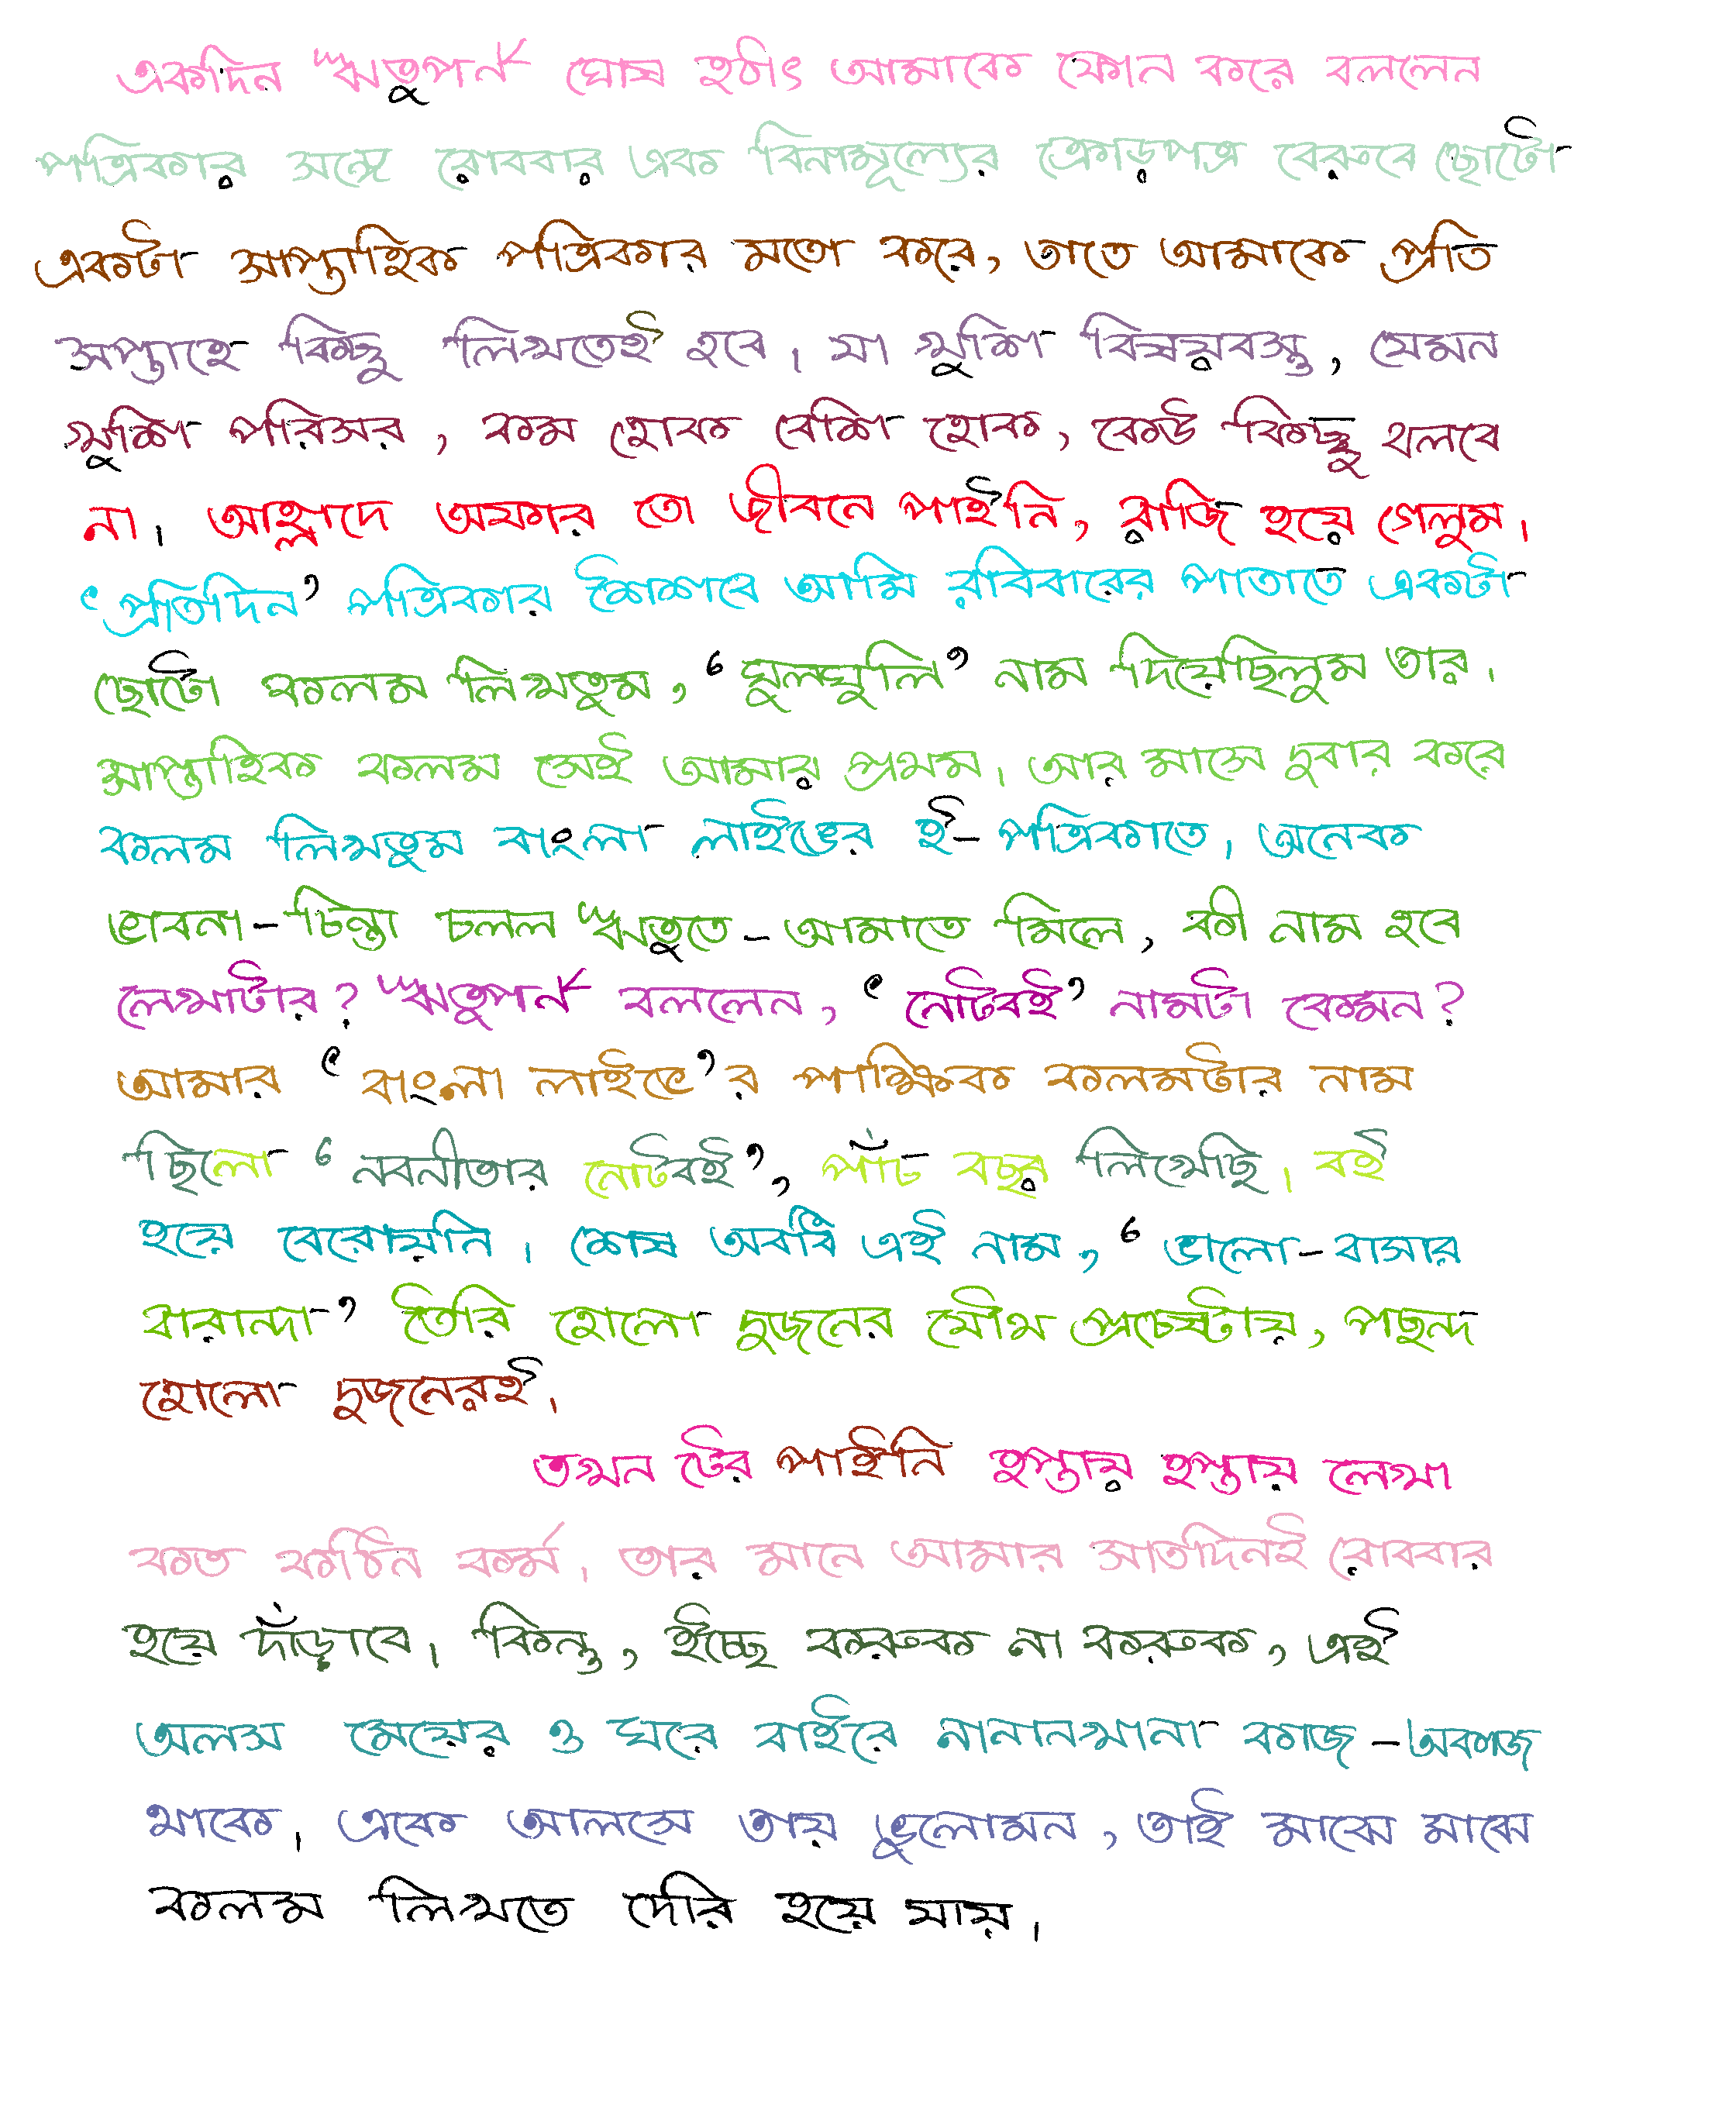 একদিন ঋতুপর্ণ ঘোষ হঠাৎ আমাকে ফোন করে বললেন
পত্রিকার সঙ্গে রোববার এক বিনামূল্যের ক্রোড়পত্র বেরুবে ছোটো
একটা সাপ্তাহিক পত্রিকার মতো করে, তাতে আমাকে প্রতি
সপ্তাহে কিছু লিখতেই হবে। যা খুশি বিষয়বস্তু, যেমন
খুশি পরিসর, কম হোক বেশি হোক, কেউ কিচ্ছু বলবে
না। আহ্লাদে অফার তো জীবনে পাইনি, রাজি হয়ে গেলুম।
‘প্রতিদিন’ পত্রিকার শৈশবে আমি রবিবারের পাতাতে একটা
ছোটো কলম লিখতুম, ‘ঘুলঘুলি’ নাম দিয়েছিলুম তার।
সাপ্তাহিক কলম সেই আমার প্রথম। আর মাসে দুবার করে
কলম লিখতুম বাংলা লাইভের ই-পত্রিকাতে। অনেক
ভাবনা-চিন্তা চলল ঋতুতে-আমাতে মিলে, কী নাম হবে
লেখাটার? ঋতুপর্ণ বললেন, ‘নোটবই’ নামটা কেমন?
আমার ‘বাংলা লাইভে’র পাক্ষিক কলমটার নাম
ছিলো ‘নবনীতার নোটবই’, পাঁচ বছর লিখেছি। বই
হয়ে বেরোয়নি। শেষ অবধি এই নাম, ‘ভালো-বাসার
বারান্দা’ তৈরি হোলো দুজনের যৌথ প্রচেষ্টায়, পছন্দ
হোলো দুজনেরই।
তখন টের পাইনি হপ্তায় হপ্তায় লেখা
কত কঠিন কর্ম। তার মানে আমার সাতদিনই রোববার
হয়ে দাঁড়াবে। কিন্তু, ইচ্ছে করুক না করুক, এই
অলস মেয়ের ও ঘরে বাইরে নানানখানা কাজ-অকাজ
থাকে। একে আলসে তায় ভুলোমন, তাই মাঝে মাঝে
কলম লিখতে দেরি হয়ে যায়।